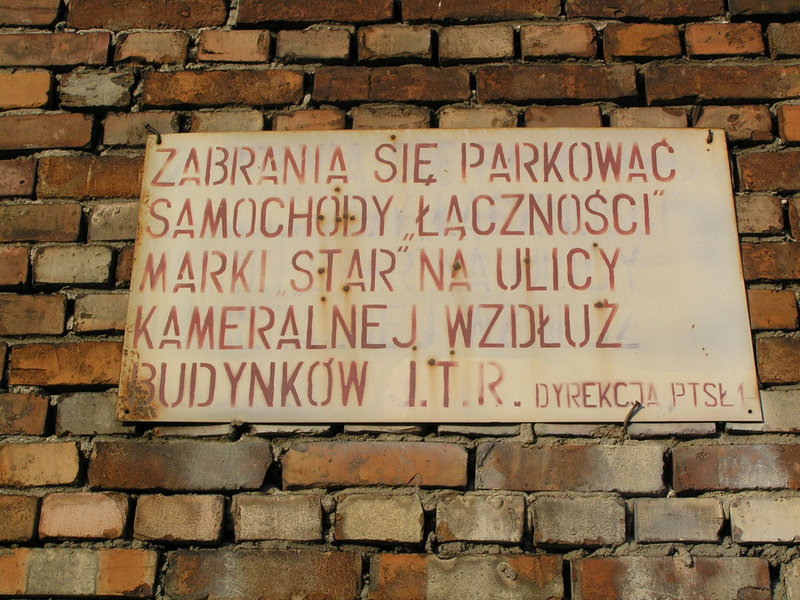 ZABRANIA SIĘ PARKOWAĆ
SAMOCHODY „ŁĄCZNOŚCI"
MARKI „STAR" NA ULICY
KAMERALNEJ WZDŁUŻ
BUDYNKÓW I.T.R. DYREKCJA PTSŁ 1-